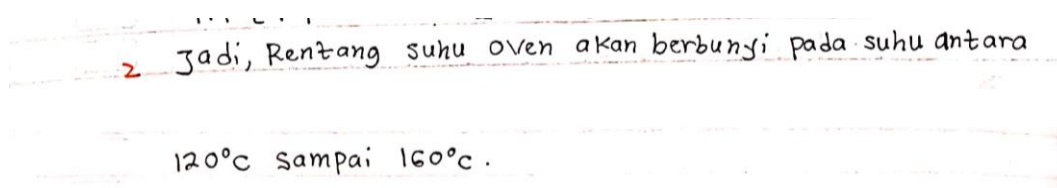 2 Jadi, Rentang suhu oven akan berbunyi pada suhu antara
120°C sampai 160°C.